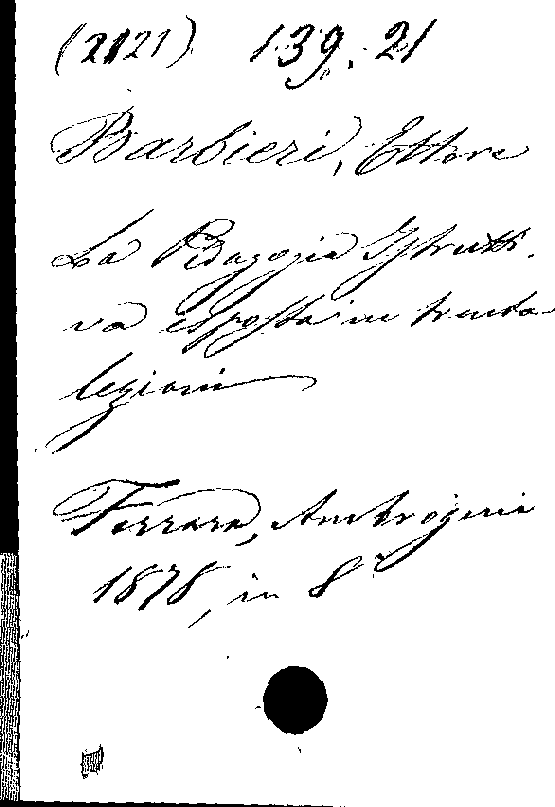 (2121) 139. 21
Barbieri, Ettore
La Pedagogia Istrutti-
va esposta in trenta
lezioni
Ferrara, Ambrogini
1878, in 8º